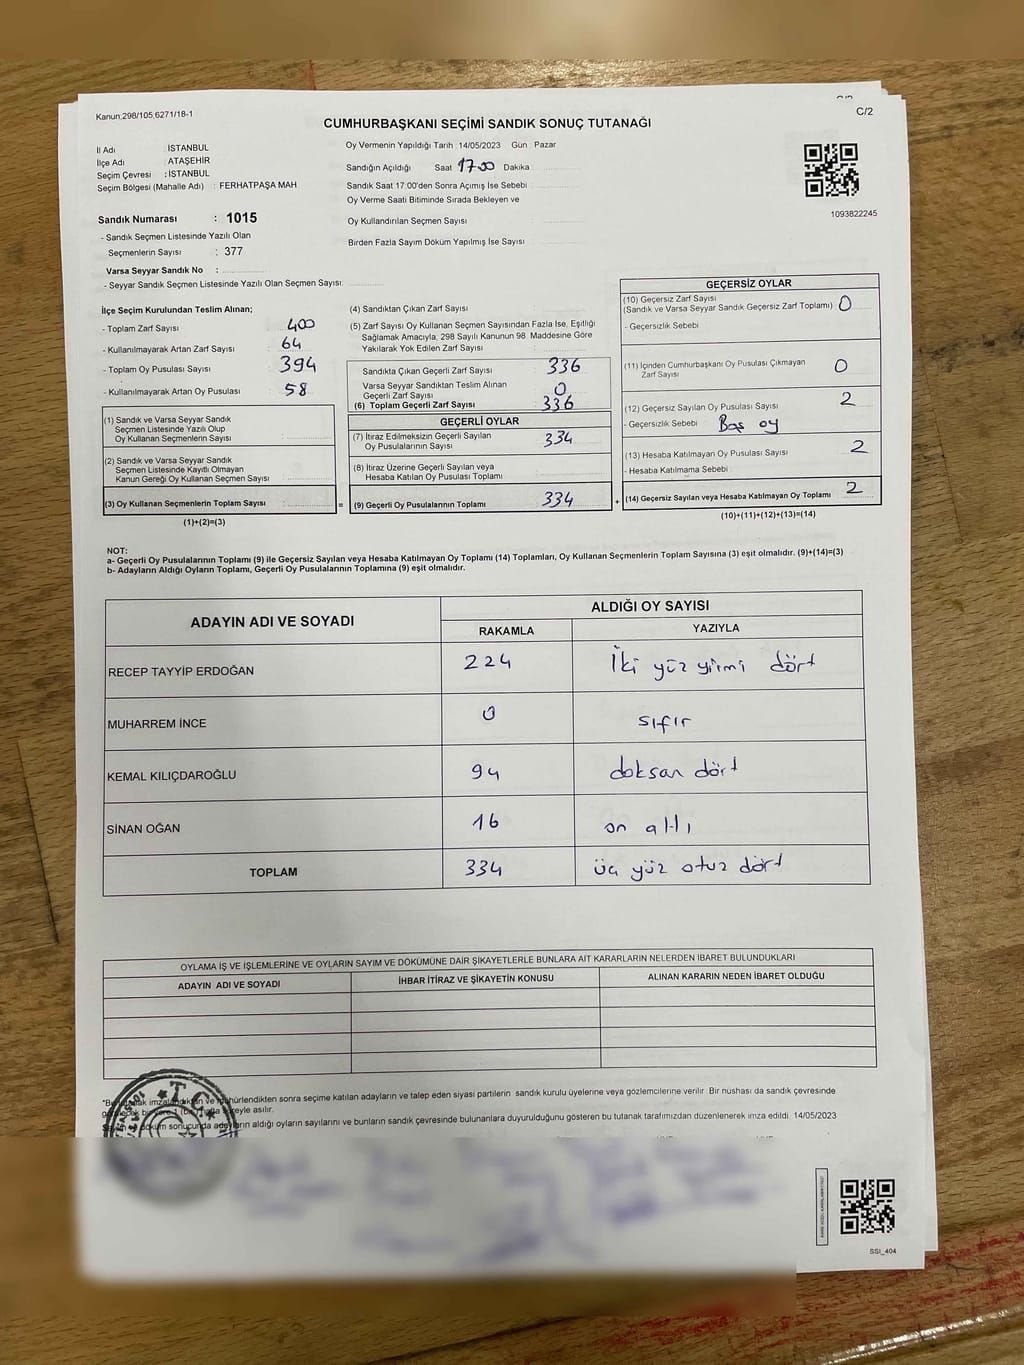 Kanun:298/105,6271/18-1
C/2
CUMHURBAŞKANI SEÇİMİ SANDIK SONUÇ TUTANAĞI
İl Adı : İSTANBUL
İlçe Adı : ATAŞEHİR
Seçim Çevresi : İSTANBUL
Seçim Bölgesi (Mahalle Adı) : FERHATPAŞA MAH
Oy Vermenin Yapıldığı Tarih : 14/05/2023 Gün : Pazar
Sandığın Açıldığı Saat 17:00 Dakika
Sandık Saat 17:00'den Sonra Açımış İse Sebebi
Oy Verme Saati Bitiminde Sırada Bekleyen ve
Oy Kullandırılan Seçmen Sayısı
Birden Fazla Sayım Döküm Yapılmış İse Sayısı
1093822245
Sandık Numarası : 1015
- Sandık Seçmen Listesinde Yazılı Olan
Seçmenlerin Sayısı : 377
Varsa Seyyar Sandık No :
- Seyyar Sandık Seçmen Listesinde Yazılı Olan Seçmen Sayısı:
İlçe Seçim Kurulundan Teslim Alınan;
- Toplam Zarf Sayısı : 400
- Kullanılmayarak Artan Zarf Sayısı : 64
- Toplam Oy Pusulası Sayısı : 394
- Kullanılmayarak Artan Oy Pusulası : 58
(1) Sandık ve Varsa Seyyar Sandık
Seçmen Listesinde Yazılı Olup
Oy Kullanan Seçmenlerin Sayısı :
(2) Sandık ve Varsa Seyyar Sandık
Seçmen Listesinde Kayıtlı Olmayan
Kanun Gereği Oy Kullanan Seçmen Sayısı :
(3) Oy Kullanan Seçmenlerin Toplam Sayısı :
(1)+(2)=(3)
=
(4) Sandıktan Çıkan Zarf Sayısı :
(5) Zarf Sayısı Oy Kullanan Seçmen Sayısından Fazla İse, Eşitliği
Sağlamak Amacıyla, 298 Sayılı Kanunun 98. Maddesine Göre
Yakılarak Yok Edilen Zarf Sayısı :
Sandıkta Çıkan Geçerli Zarf Sayısı : 336
Varsa Seyyar Sandıktan Teslim Alınan
Geçerli Zarf Sayısı : 0
(6) Toplam Geçerli Zarf Sayısı : 336
GEÇERLİ OYLAR
(7) İtiraz Edilmeksizin Geçerli Sayılan
Oy Pusulalarının Sayısı : 334
(8) İtiraz Üzerine Geçerli Sayılan veya
Hesaba Katılan Oy Pusulası Toplamı :
(9) Geçerli Oy Pusulalarının Toplamı : 334
+
GEÇERSİZ OYLAR
(10) Geçersiz Zarf Sayısı
(Sandık ve Varsa Seyyar Sandık Geçersiz Zarf Toplamı) : 0
- Geçersizlik Sebebi
(11) İçinden Cumhurbaşkanı Oy Pusulası Çıkmayan
Zarf Sayısı : 0
(12) Geçersiz Sayılan Oy Pusulası Sayısı : 2
- Geçersizlik Sebebi : Boş oy
(13) Hesaba Katılmayan Oy Pusulası Sayısı : 2
- Hesaba Katılmama Sebebi
(14) Geçersiz Sayılan veya Hesaba Katılmayan Oy Toplamı : 2
(10)+(11)+(12)+(13)=(14)
NOT:
a- Geçerli Oy Pusulalarının Toplamı (9) ile Geçersiz Sayılan veya Hesaba Katılmayan Oy Toplamı (14) Toplamları, Oy Kullanan Seçmenlerin Toplam Sayısına (3) eşit olmalıdır. (9)+(14)=(3)
b- Adayların Aldığı Oyların Toplamı, Geçerli Oy Pusulalarının Toplamına (9) eşit olmalıdır.
ADAYIN ADI VE SOYADI
ALDIĞI OY SAYISI
RAKAMLA YAZIYLA
RECEP TAYYİP ERDOĞAN 224 İki yüz yirmi dört
MUHARREM İNCE 0 sıfır
KEMAL KILIÇDAROĞLU 94 doksan dört
SİNAN OĞAN 16 on altı
TOPLAM 334 üç yüz otuz dört
OYLAMA İŞ VE İŞLEMLERİNE VE OYLARIN SAYIM VE DÖKÜMÜNE DAİR ŞİKAYETLERLE BUNLARA AİT KARARLARIN NELERDEN İBARET BULUNDUKLARI
ADAYIN ADI VE SOYADI İHBAR İTİRAZ VE ŞİKAYETİN KONUSU ALINAN KARARIN NEDEN İBARET OLDUĞU
"Bu tutanak imzalandıktan ve mühürlendikten sonra seçime katılan adayların ve talep eden siyasi partilerin sandık kurulu üyelerine veya gözlemcilerine verilir. Bir nüshası da sandık çevresinde
görülecek bir yere 1 (bir) hafta süreyle asılır.
Sayım ve döküm sonucunda adayların aldığı oyların sayılarını ve bunların sandık çevresinde bulunanlara duyurulduğunu gösteren bu tutanak tarafımızdan düzenlenerek imza edildi. 14/05/2023
T.C.
SSI_404